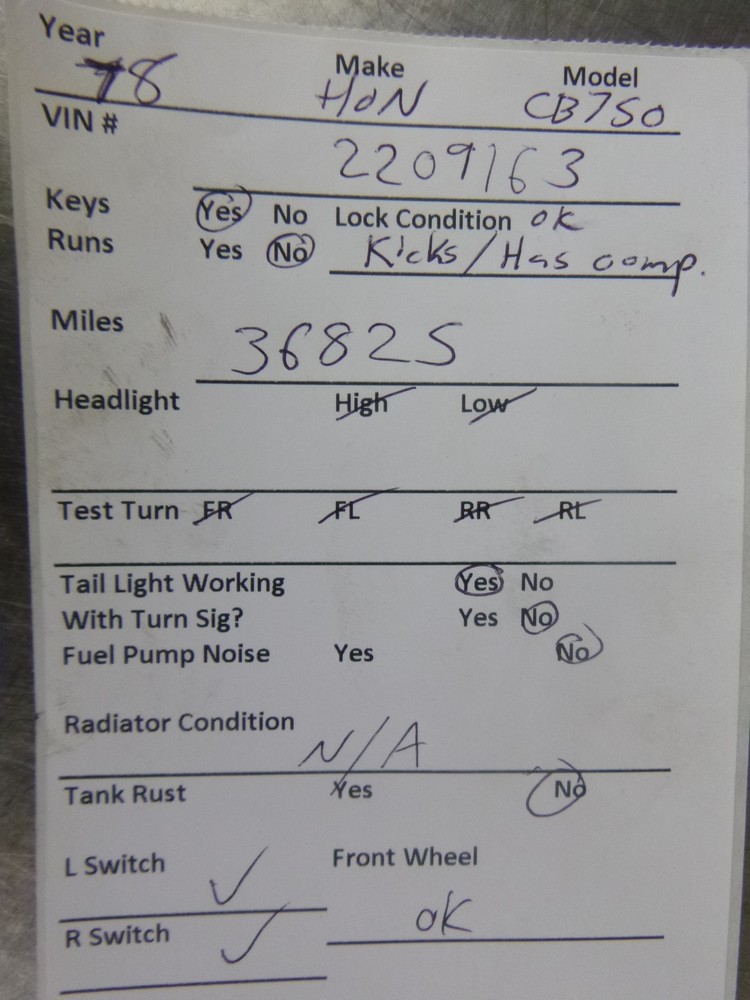 Year Make Model
78 HON CB750
VIN #
2209163
Keys Yes No Lock Condition OK
Runs Yes No Kicks/Has comp.
Miles 36825
Headlight High Low
Test Turn FR FL RR RL
Tail Light Working Yes No
With Turn Sig? Yes No
Fuel Pump Noise Yes No
Radiator Condition
N/A
Tank Rust Yes No
L Switch ✓ Front Wheel
R Switch ✓ OK